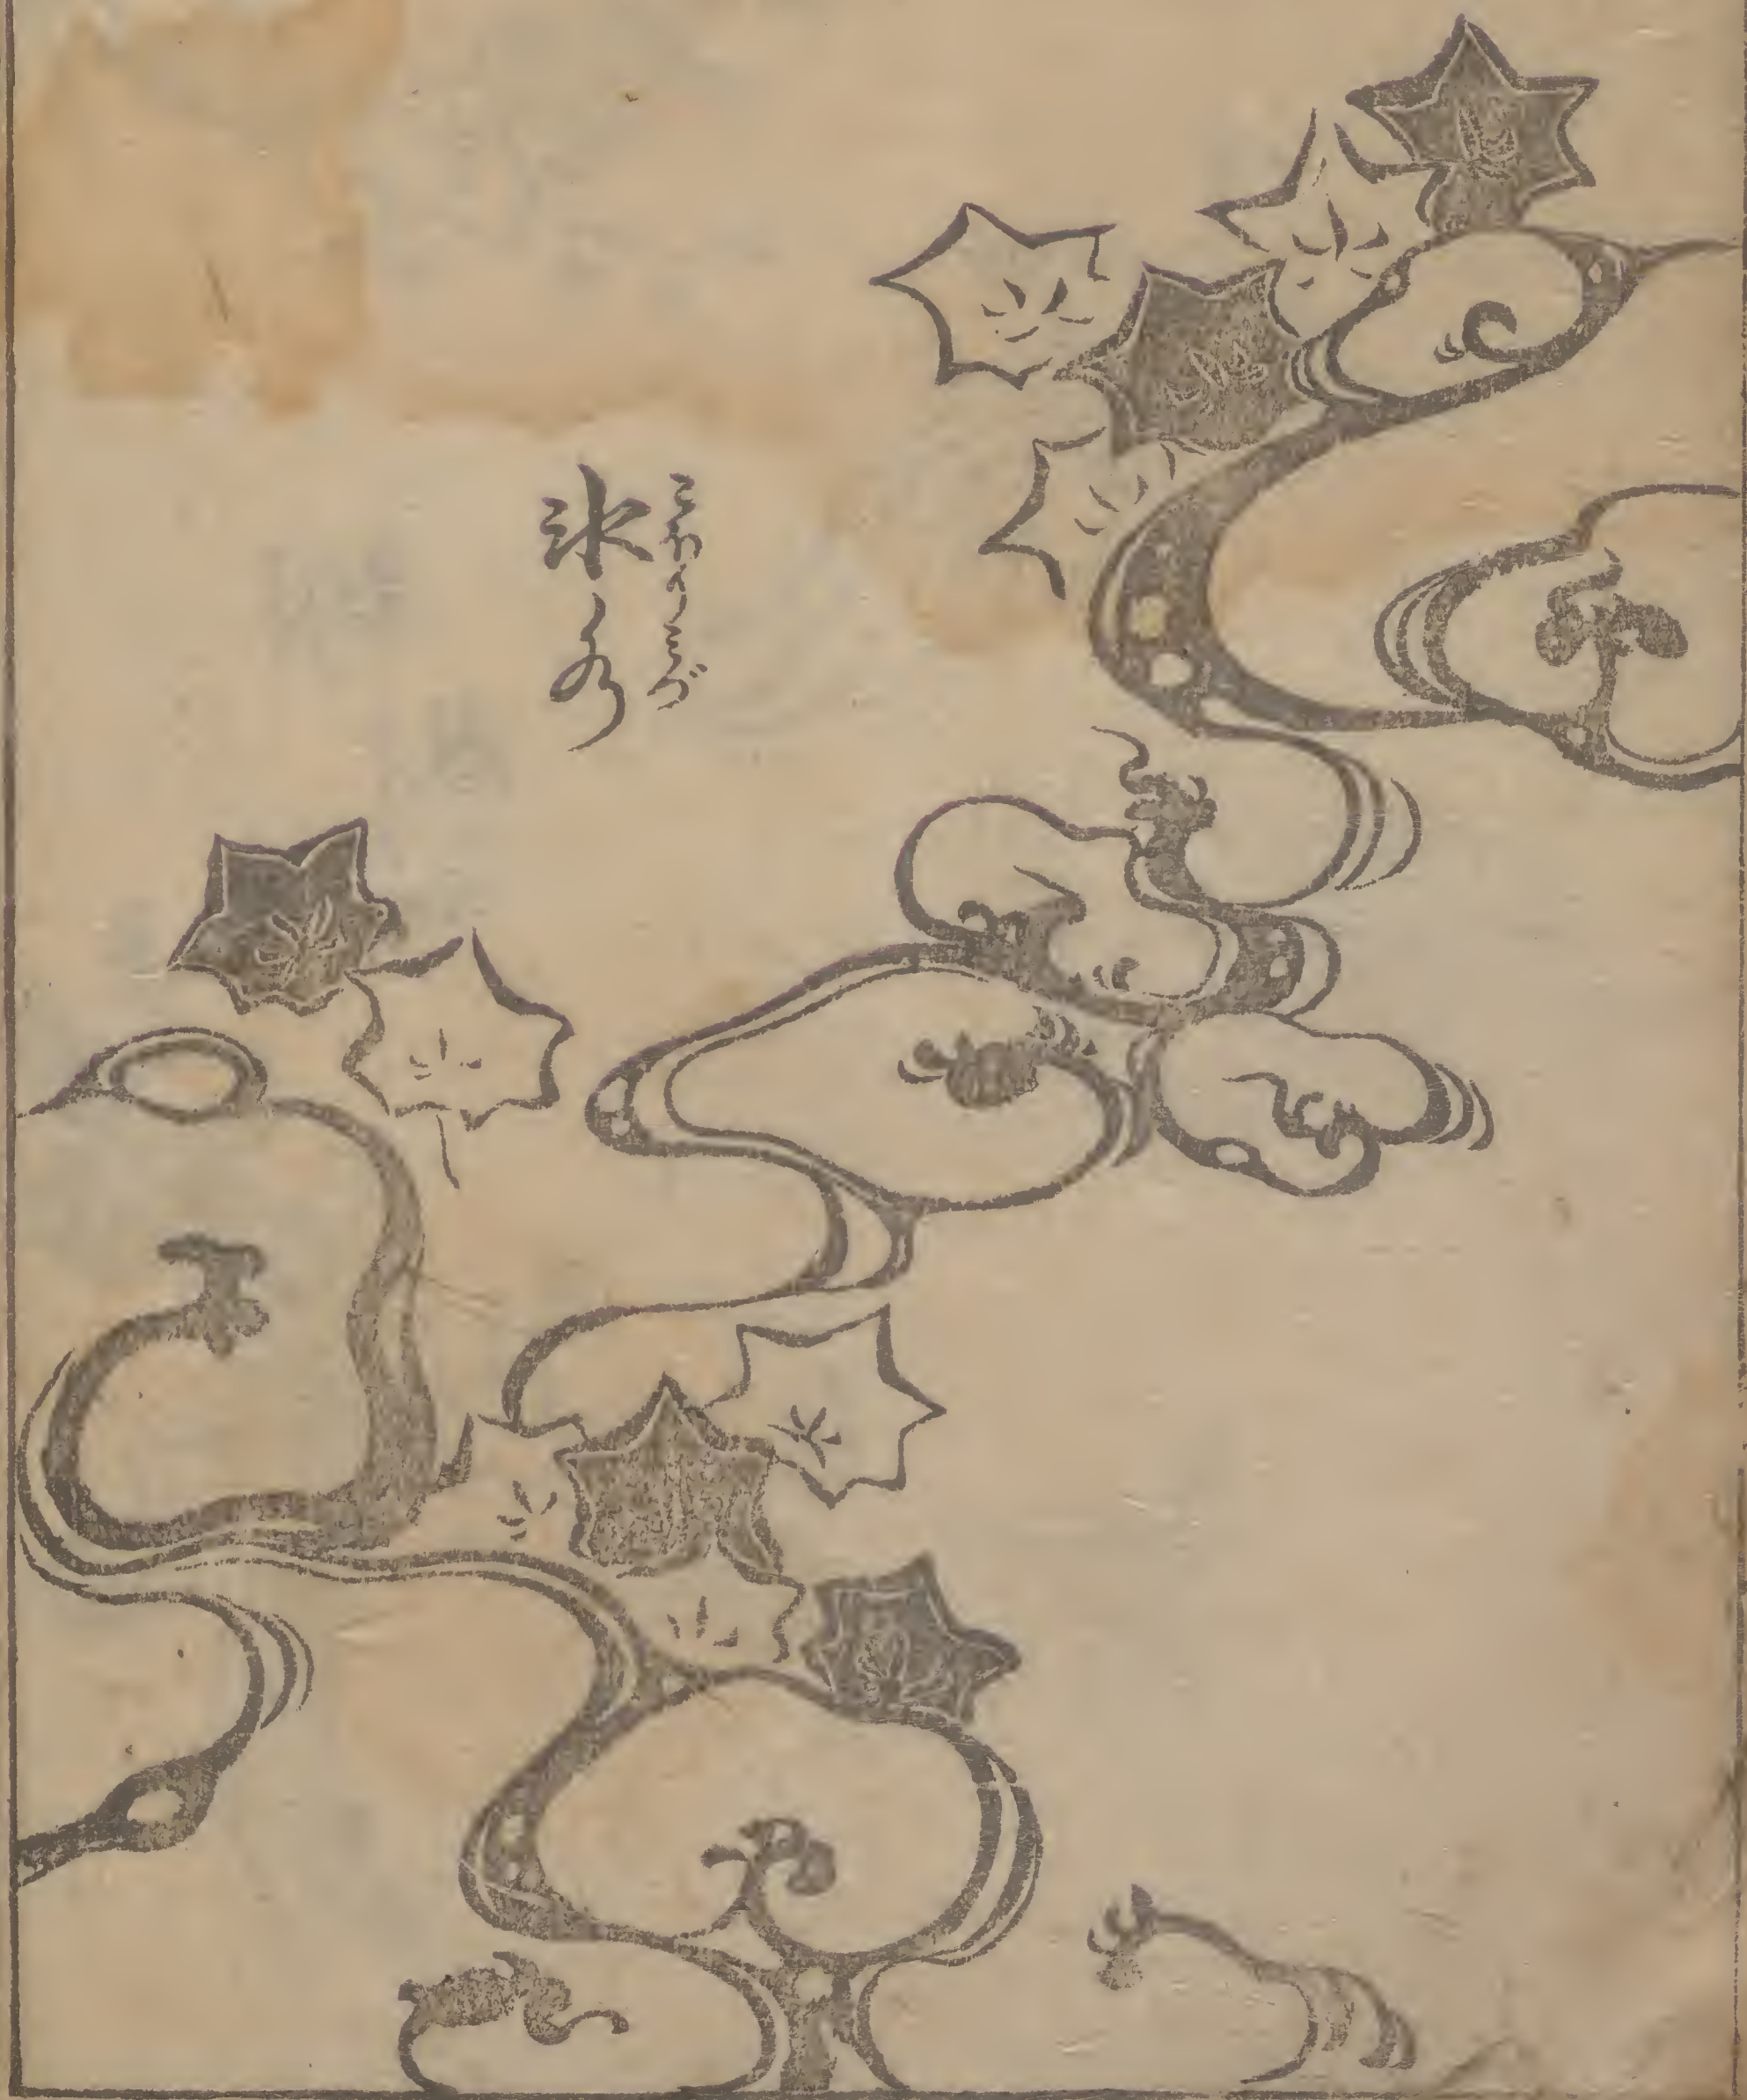 こほりミづ
氷水